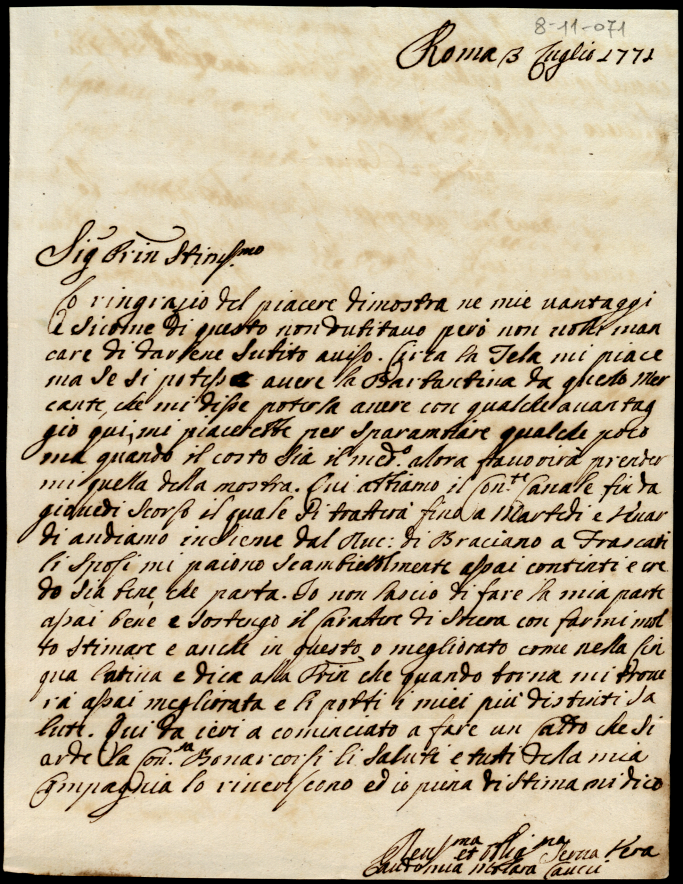 8-11-071
Roma 3 Luglio 1771
Sig Prin Stimss.mo
Lo ringrazio del piacere dimostra ne mie vantaggi
e sicome di questo non dubitavo però non volli man
care di darlene subito aviso. Circa la Tela mi piace
ma se si potesse avere la Barbantina da quello Mer
cante, che mi disse poterla avere con qualche avantag
gio qui, mi piacerebbe per sparambiare qualche poco
ma quando il costo sia il med.o allora favorirà prender
mi quella della mostra. Qui abbiamo il Con.te Canale fin da
giovedi scorso il quale si tratterà fino a Martedi e Venar
di andiamo insieme dal Duc: di Braciano a Frascati
li sposi mi paiono scambielmente assai contenti e cre
do sia bene che parta. Io non lascio di fare la mia parte
assai bene e sostengo il Caratere di Socera con farmi mol
to stimare e anche in questo o megliorato come nella Lin
qua Latina e dica alla Prin che quando torna mi trove
rà assai megliorata e li porti i miei più distinti sa
luti. Qui da ieri a cominciato a fare un Caldo che si
arde la Con.sa Bonarcorsi li saluti e tutti della mia
Compagnia lo riveriscono ed io piena di stima mi dico
ma na
et Obblig Serva Vera
Cautonia Caucci